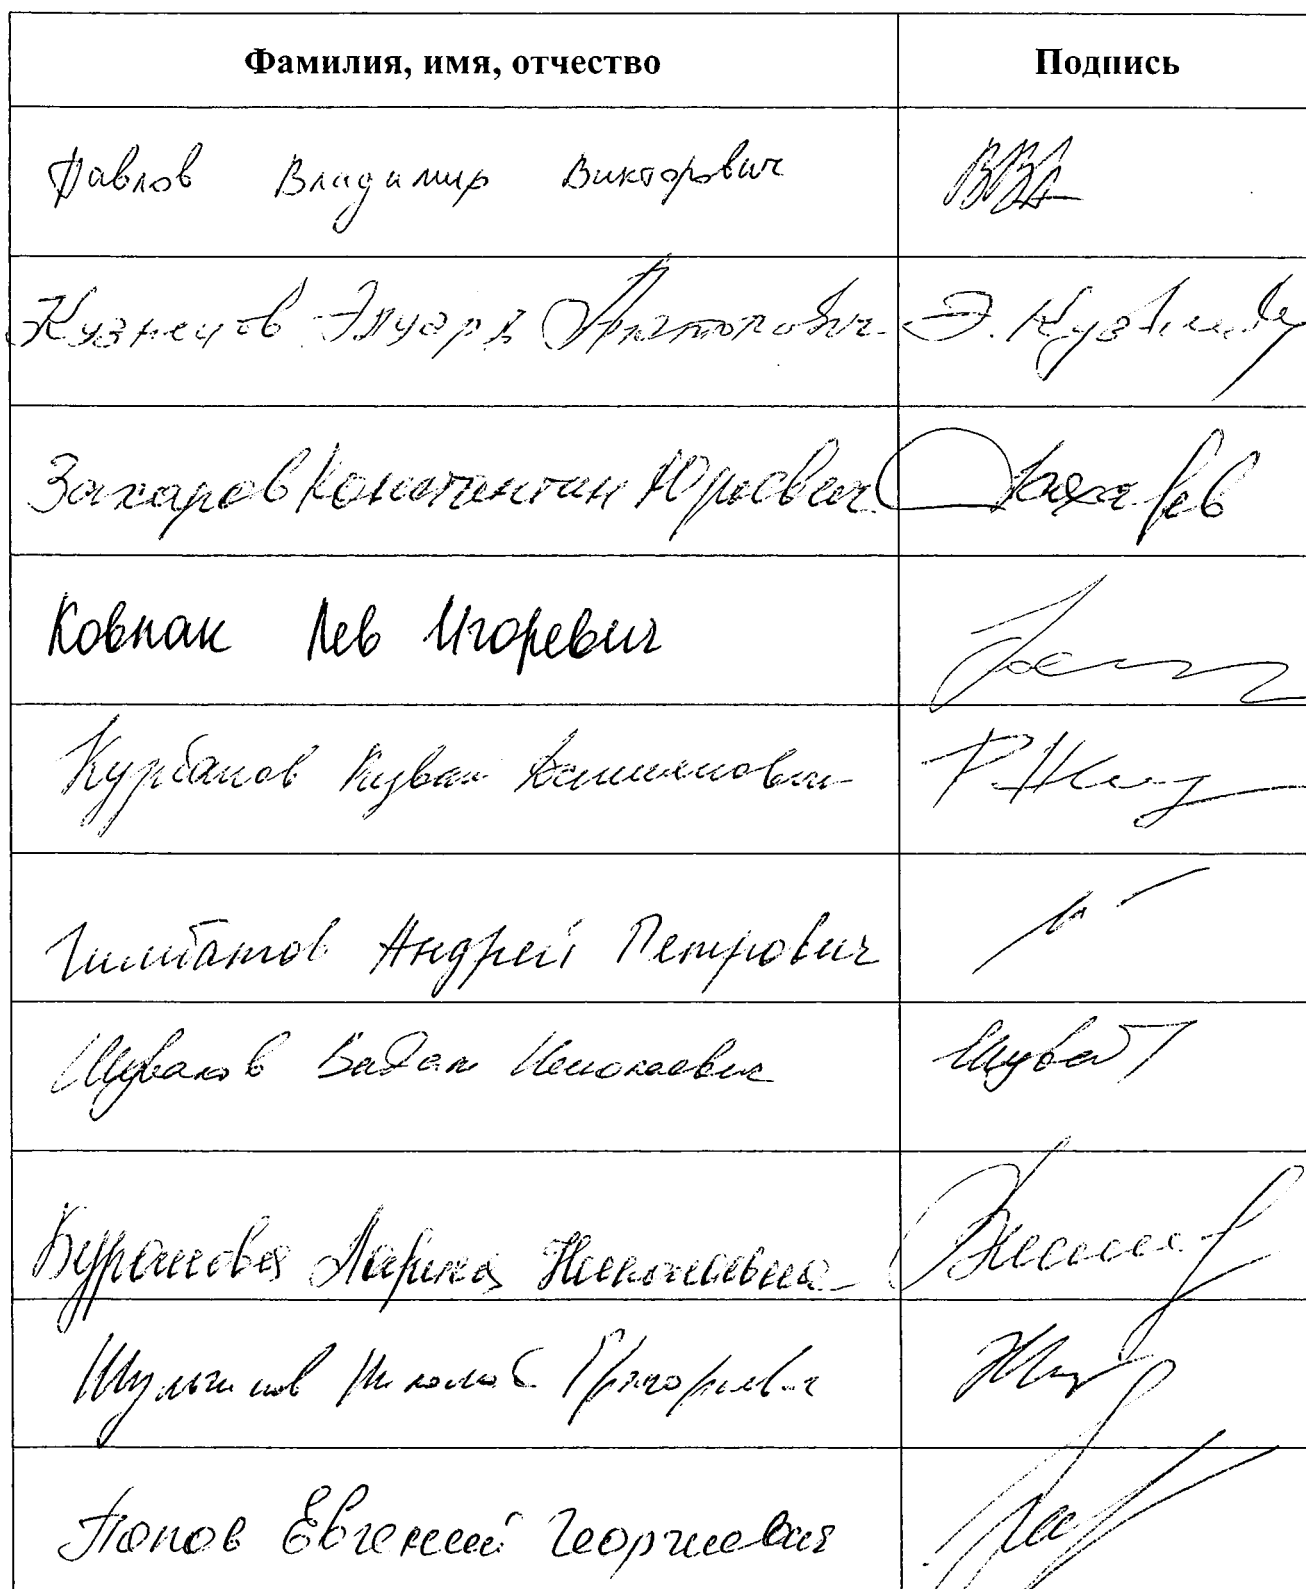 Фамилия, имя, отчество Подпись
Павлов Владимир Викторович
Кузнецов Эдуард Э. Кузнец
Захаров Константин Юрьевич Захаров
Ковпак Лев Игоревич
Курбанов
Андрей Петрович
Шувалов Вадим Николаевич Шувал
Буранова Марина Николаевна
Шульгинов Николай Григорьевич
Попов Евгений Георгиевич